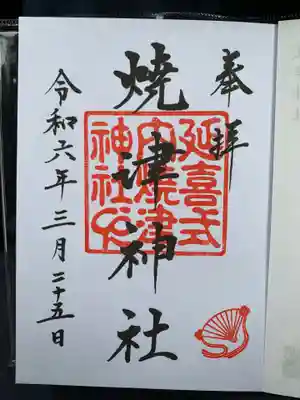 奉拝
焼津神社
延喜式
内焼津
神社印
令和六年三月二十五日